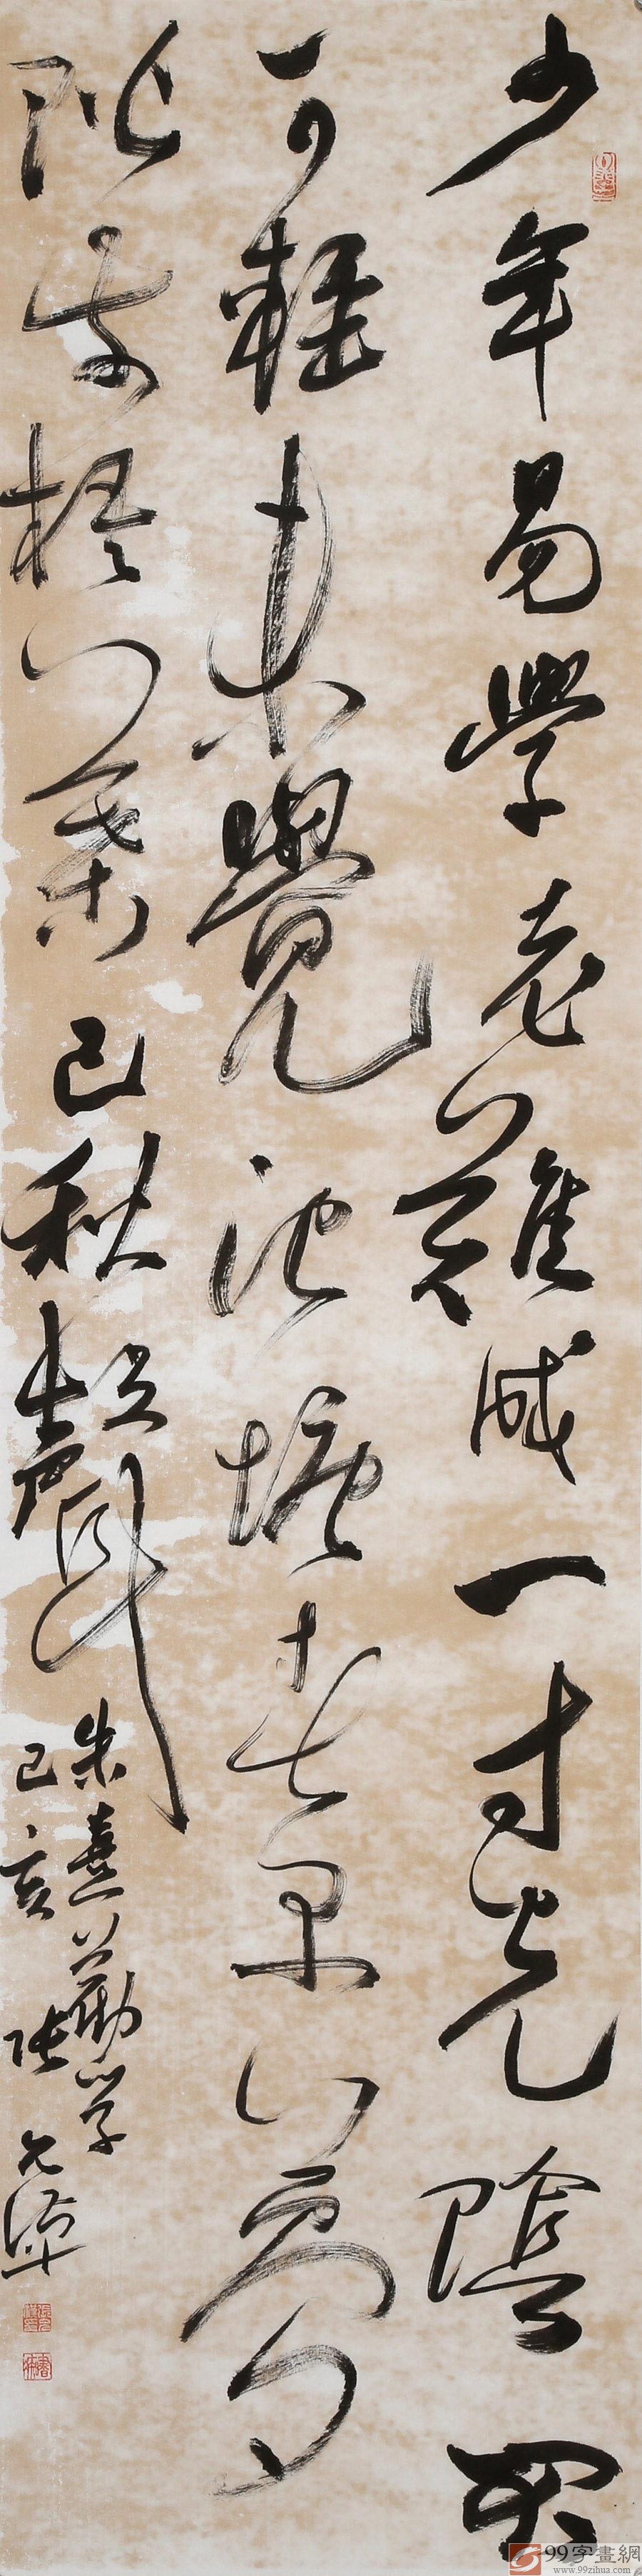 少年易學老難成一寸光陰不
可輕未覺池塘春草夢
階前梧葉已秋聲
朱熹勸学
己亥 張允
99字畫網
www.99zihua.com